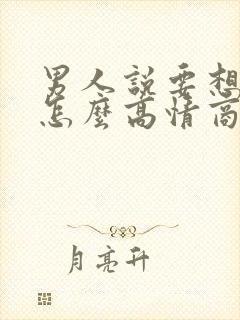 男人說要想
怎麼高情商
月亮升